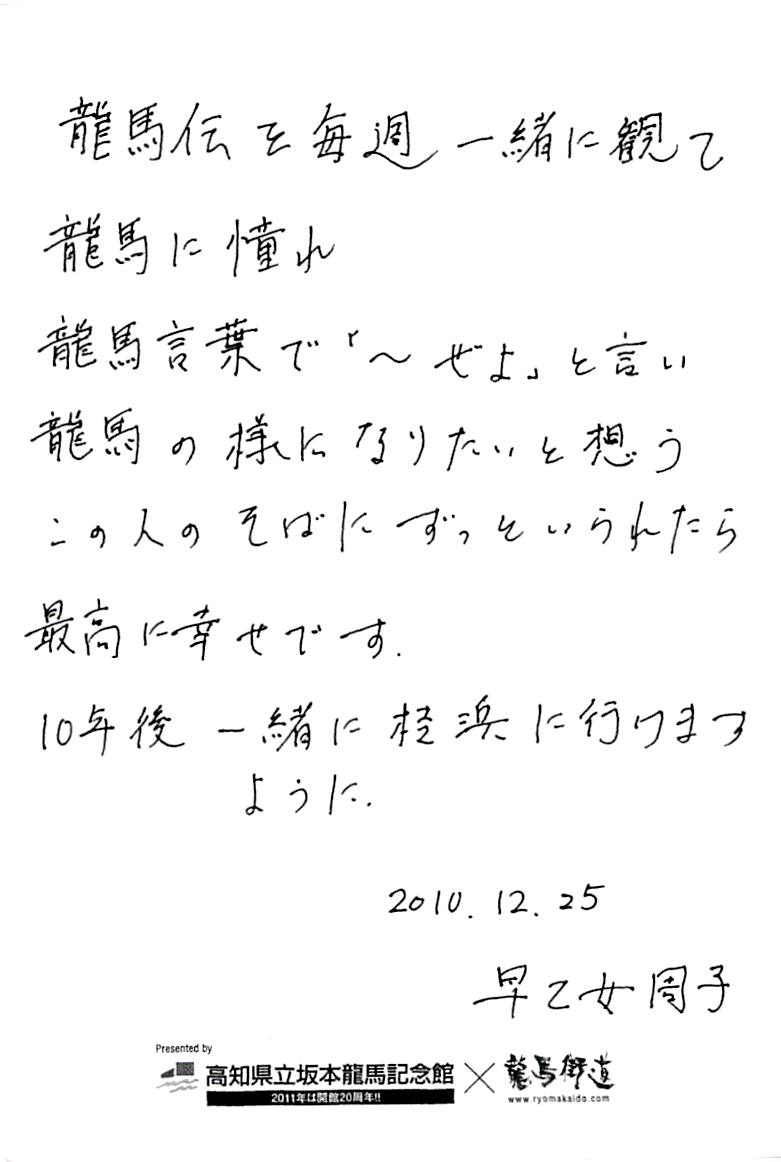 龍馬伝を毎週一緒に観て
龍馬に憧れ
龍馬言葉で「～ぜよ」と言い
龍馬の様になりたいと想う
この人のそばにずっといられたら
最高に幸せです.
10年後 一緒に桂浜に行けます
ように.
2010.12.25
早乙女周子
Presented by
高知県立坂本龍馬記念館 × 龍馬街道
2011年は開館20周年!!
www.ryomakaido.com